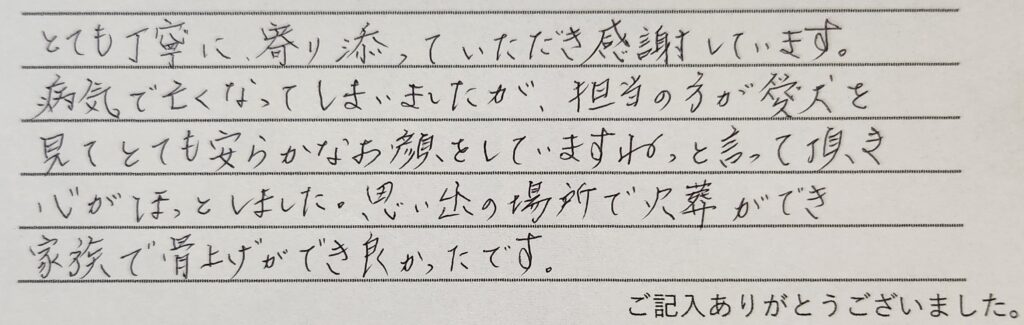 とても丁寧に、寄り添っていただき感謝しています。
病気で亡くなってしまいましたが、担当の方が愛犬を
見てとても安らかなお顔をしていますねっと言って頂き
心がほっとしました。思い出の場所で火葬ができ
家族で骨上げができ良かったです。
ご記入ありがとうございました。